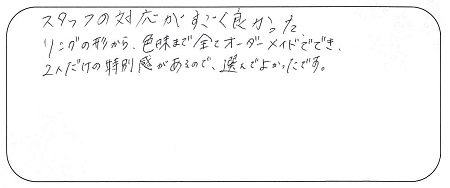 スタッフの対応がすごく良かった
リングの形から、色味まで全てオーダーメイドででき、
2人だけの特別感があるので、選んでよかったです。